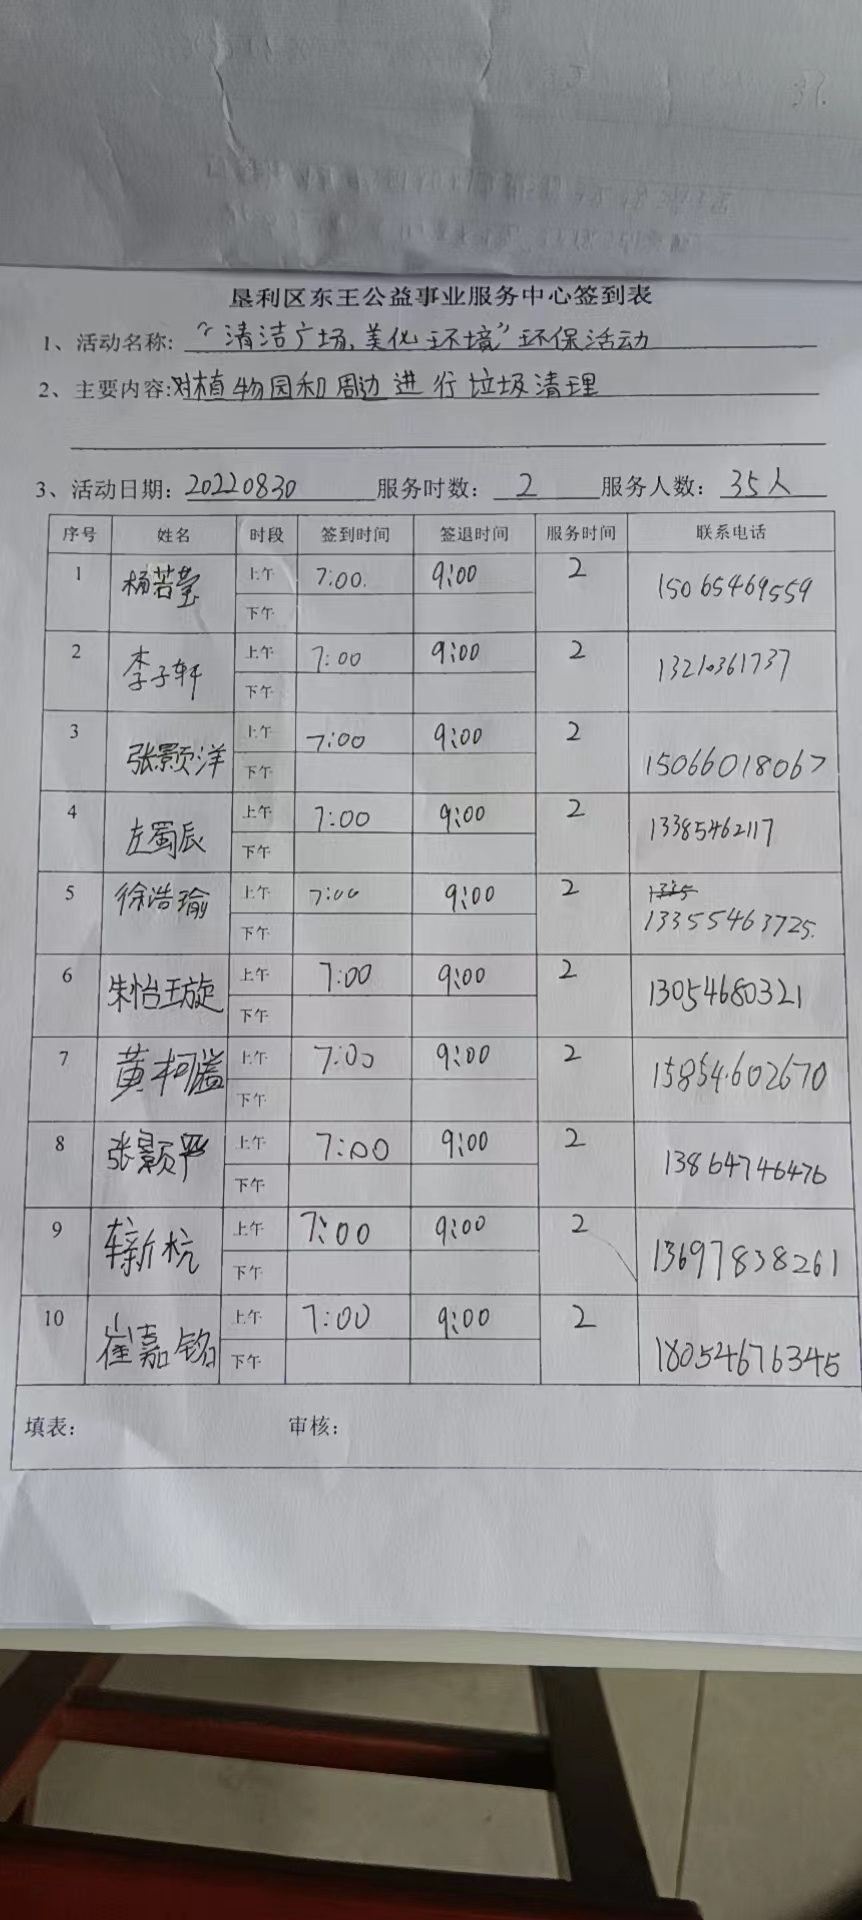 垦利区东王公益事业服务中心签到表
1、活动名称:“清洁广场,美化环境”环保活动
2、主要内容:对植物园和周边进行垃圾清理
3、活动日期:20220830 服务时数:2 服务人数:35人
序号 姓名 时段 签到时间 签退时间 服务时间 联系电话
1 杨若莹 上午 7:00. 9:00 2 15065469559
下午
2 李子轩 上午 7:00 9:00 2 13210361737
下午
3 张颢洋 上午 7:00 9:00 2 15066018067
下午
4 左蜀辰 上午 7:00 9:00 2 13385462117
下午
5 徐浩瑜 上午 7:00 9:00 2 1335
下午 13355463725.
6 朱怡璇 上午 7:00 9:00 2 13054680321
下午
7 黄柯谥 上午 7:00 9:00 2 15854602670
下午
8 张颢严 上午 7:00 9:00 2 13864746476
下午
9 新杭 上午 7:00 9:00 2 13697838261
下午
10 崔嘉铭 上午 7:00 9:00 2 18054676345
下午
填表: 审核: